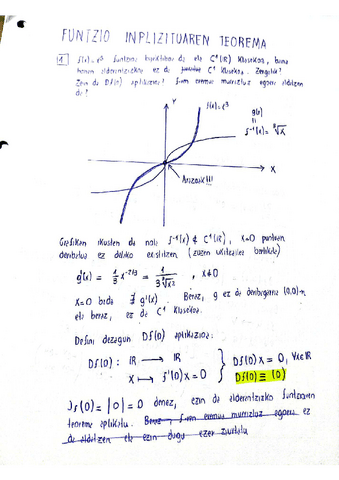 FUNTZIO INPLIZITUAREN TEOREMA
1 f(x)=x³ funtzioa bijektiboa da eta C¹(ℝ) klasekoa, baina
honen alderantzizkoa ez da C¹ klasekoa. Zergatik?
Zein da Df(0) aplikazioa? Aren eremua murriztuz egoera aldatzen
da?
Y
f(x)=x³
g(x)
=
f⁻¹(x)=∛x
X
Arazoak!!!
Grafikan ikusten da nola f⁻¹(x) ∉ C¹(ℝ), x=0 puntuan
deribatua ez delako existitzen (zuzen ukitzailea bertikala)
g'(x) = 1/3 x^(-2/3) = 1/(3∛x²), x≠0
x=0 bada ∄ g'(x). Beraz, g ez da deribagarria (0,0)-n
eta beraz, ez da C¹ klasekoa.
Defini dezagun Df(0) aplikazioa:
Df(0) : ℝ → ℝ
x ↦ f'(0)x = 0
Df(0)x = 0, ∀x∈ℝ
Df(0) ≡ (0)
Jf(0) = |0| = 0 denez, ezin da alderantzizko funtzioaren
teorema aplikatu. Beraz, eremua murriztuz egoera ez
da aldatzen eta ezin dugu ezer ziurtatu